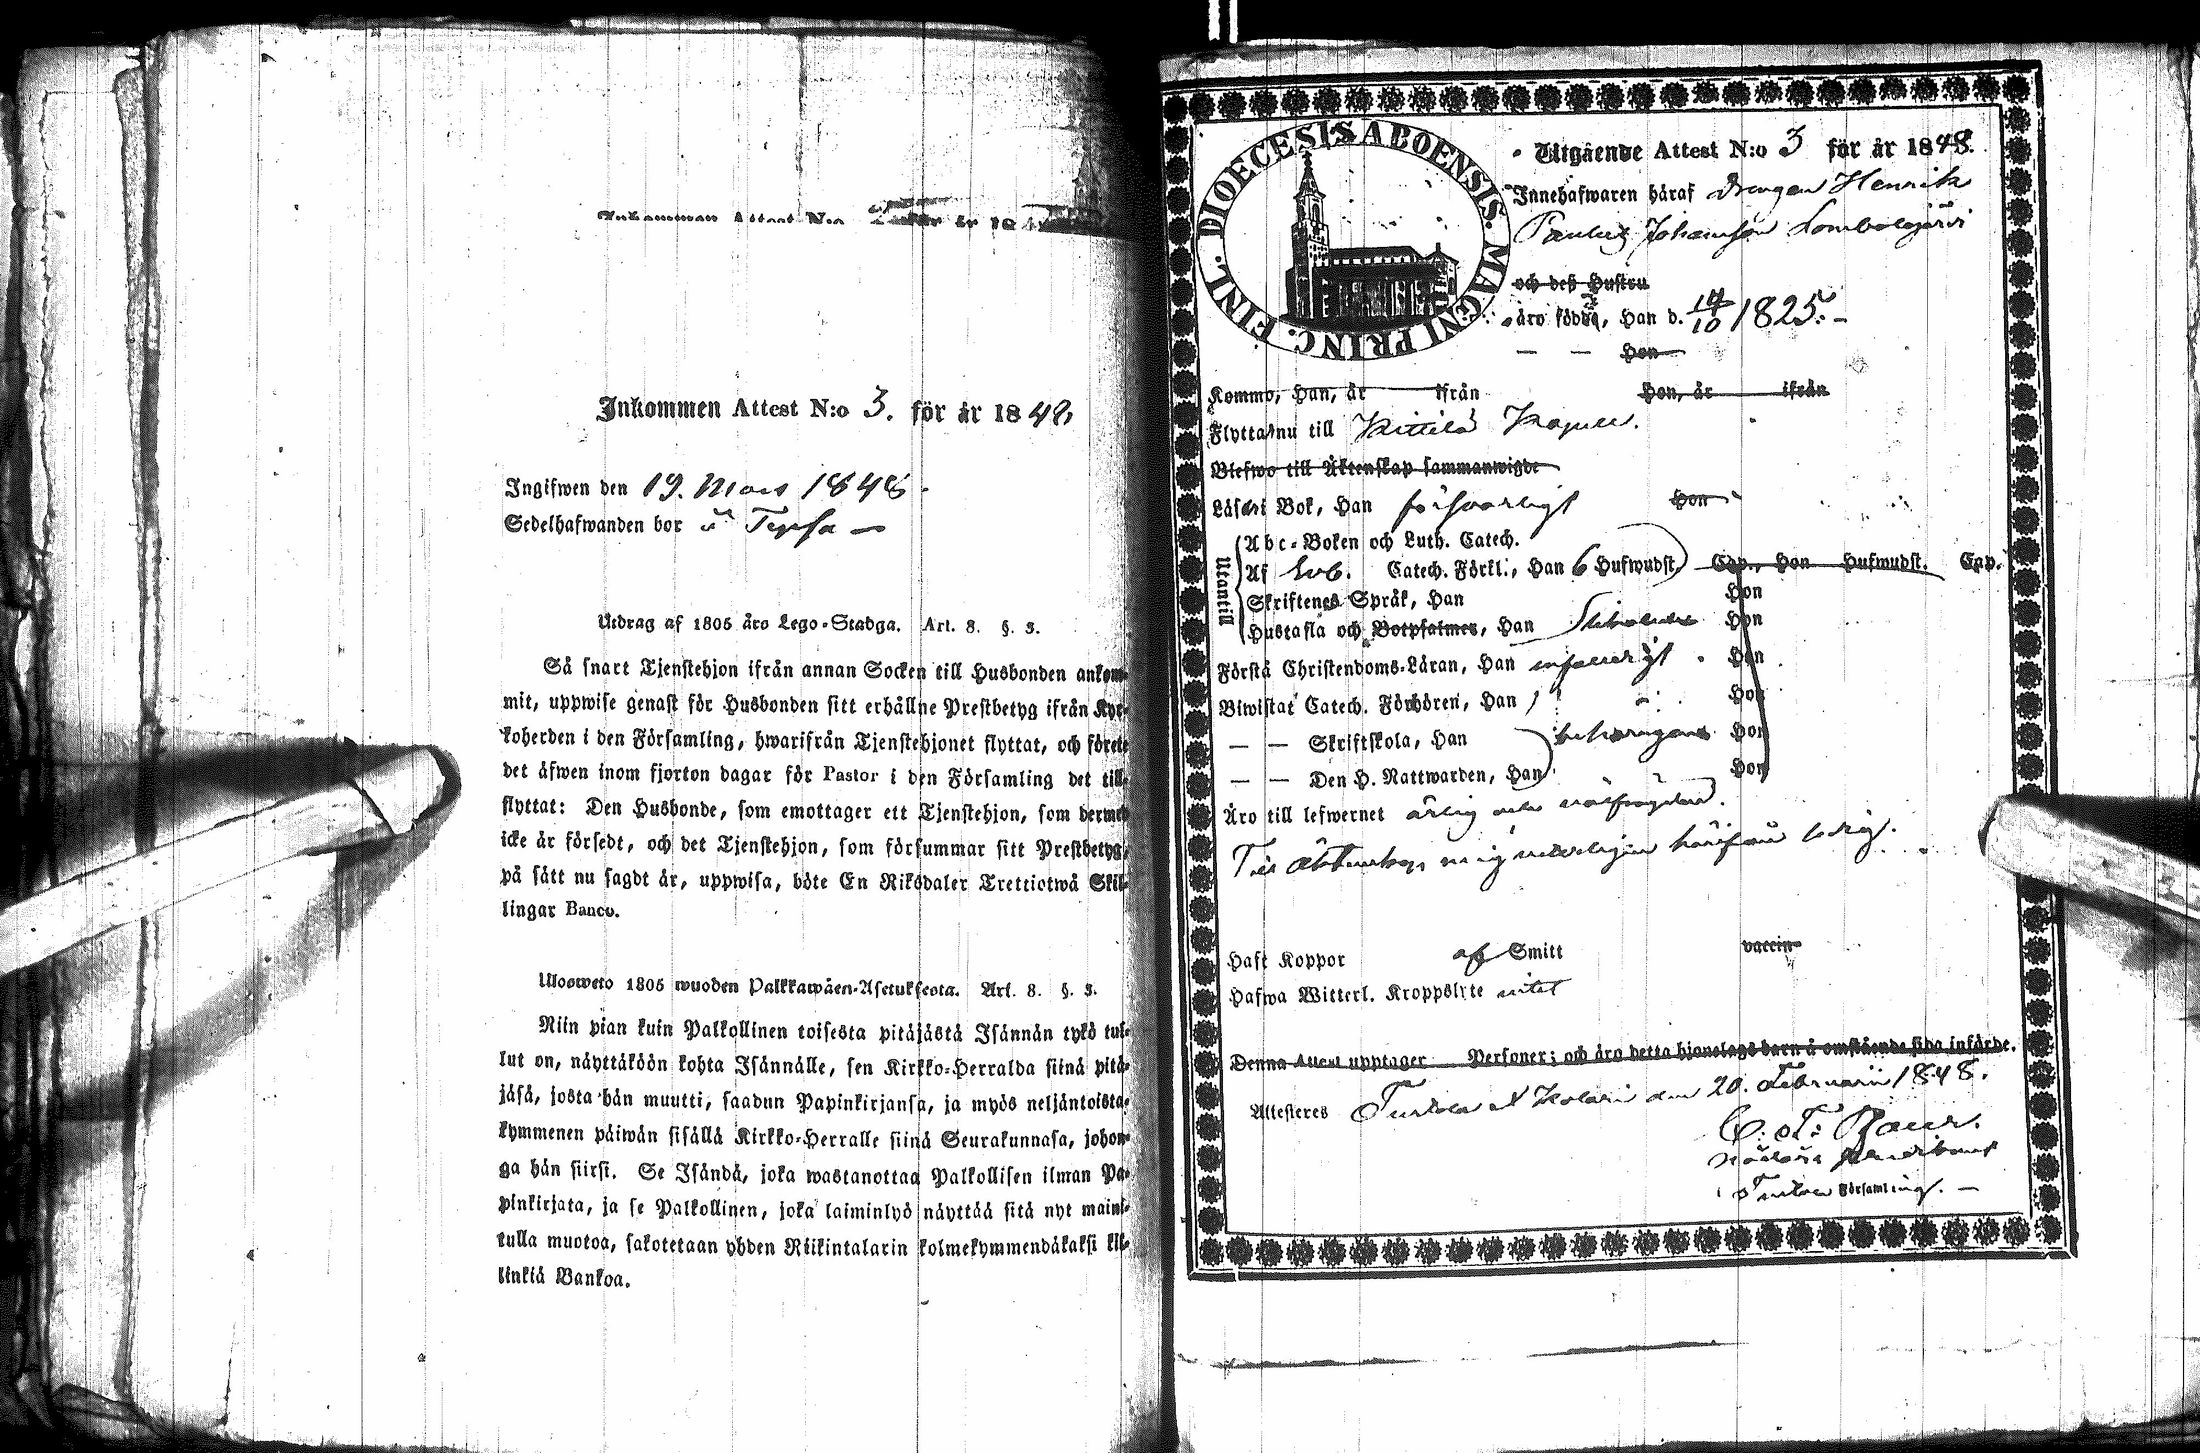 Inkommen Attest N:o för år 18
Inkommen Attest N:o 3. för år 1848
Ingifwen den 19. Mars 1848.
Sedelhafwanden bor i Tepsa
Utdrag af 1805 års Lego-Stadga. Art. 8. §. 3.
Så snart Tjenstehjon ifrån annan Socken till Husbonden ankom-
mit, uppwise genast för Husbonden sitt erhållne Prestbetyg ifrån Kyr-
koherden i den Församling, hwarifrån Tjenstehjonet flyttat, och förete
det äfwen inom fjorton dagar för Pastor i den Församling det till-
flyttat: Den Husbonde, som emottager ett Tjenstehjon, som dermed
icke är försedt, och det Tjenstehjon, som försummar sitt Prestbetyg,
på sätt nu sagdt är, uppwisa, böte En Riksdaler Trettiotwå Skil-
lingar Banco.
Ulosweto 1805 wuoden Palkkawäen-Asetuksesta. Art. 8. §. 3.
Niin pian kuin Palkollinen toisesta pitäjästä Isännän tykö tul-
lut on, näyttäköön kohta Isännälle, sen Kirkko-Herralda siinä pitä-
jäsä, josta hän muutti, saadun Papinkirjansa, ja myös neljäntoista-
kymmenen päiwän sisällä Kirkko-Herralle siinä Seurakunnasa, johon-
ga hän siirsi. Se Isändä, joka wastanottaa Palkollisen ilman Pa-
pinkirjata, ja se Palkollinen, joka laiminlyö näyttää sitä nyt maini-
tulla muotoa, sakotetaan yhden Riikintalarin kolmekymmendäkaksi kil-
linkiä Bankoa.
DIOECESIS ABOENSIS. MAGNI PRINC. FINL.
Utgående Attest N:o 3 för år 1848.
Innehafwaren häraf drengen Henrik
Paulus Johansson Lombolojärvi
och deß Hustru
äro födde, Han d. 14/10 1825.
Hon
Kommo, Han, år ifrån Hon, år ifrån
Flytta nu till Kittilä Kapell.
Blefwo till Äktenskap sammanwigde
Läser i Bok, Han försvarligt Hon
Utantill
Abc-Boken och Luth. Catech.
Af Svb. Catech. Förkl., Han 6 Hufwudst. Cap., Hon Hufwudst. Cap.
Skriftenes Språk, Han Hon
Hustafla och Botpsalmer, Han Hon
Förstå Christendoms-Läran, Han Hon
Biwistat Catech. Förhören, Han Hon
— — Skriftskola, Han behörigen Hon
— — Den H. Nattwarden, Han Hon
Äro till lefwernet ärlig och välfrägdad.
Till äktenskap mig veterligen härifrån ledig.
Haft Koppor af Smitt vaccin
Hafwa Witterl. Kroppslyte intet
Denna Attest upptager Personer; och äro detta hjonelags barn å omstående sida införde.
Attesteras Turtola & Kolari den 20. Februarii 1848.
Församling.